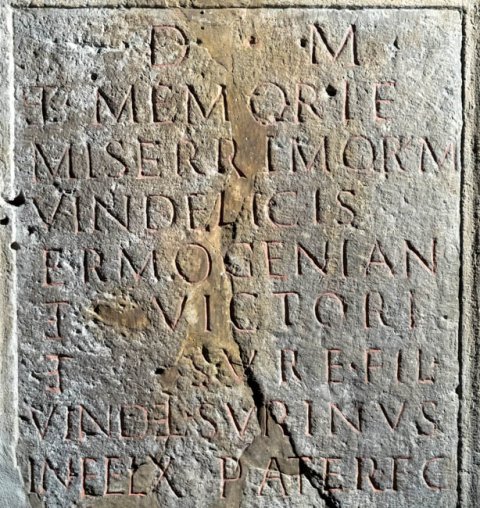 D · M
ET MEMORIE
MISERRIMORVM
VINDELICIS
ERMOGENIAN
ET VICTORI
ET SVRE · FIL
VINDEL SVRINVS
INFELIX PATER F C